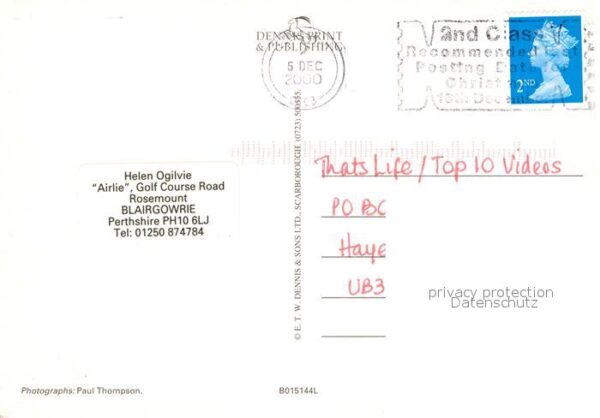 DENNIS PRINT
& PUBLISHING
5 DEC
2000
2nd Class
Recommended
Posting Date for
Christ
18th Decem
2ND
© E. T. W. DENNIS & SONS LTD., SCARBOROUGH (0723) 500555.
Helen Ogilvie
"Airlie", Golf Course Road
Rosemount
BLAIRGOWRIE
Perthshire PH10 6LJ
Tel: 01250 874784
Thats Life / Top 10 Videos
PO BC
Haye
UB3
privacy protection
Datenschutz
Photographs: Paul Thompson.
B015144L